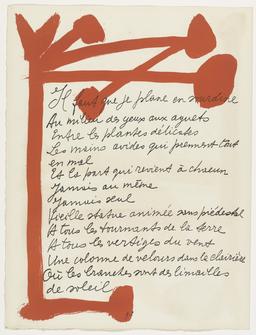 Il faut que je plane en sourdine
Au milieu des yeux aux aguets
Entre les plantes délicates
Les mains avides qui prennent tout
en mal
Et la part qui revient à chacun
Jamais au même
Jamais seul
Vieille statue animée sans piédestal
A tous les tournants de la terre
A tous les vertiges du vent
Une colonne de velours dans la clairière
Où les branches sont des limailles
de soleil